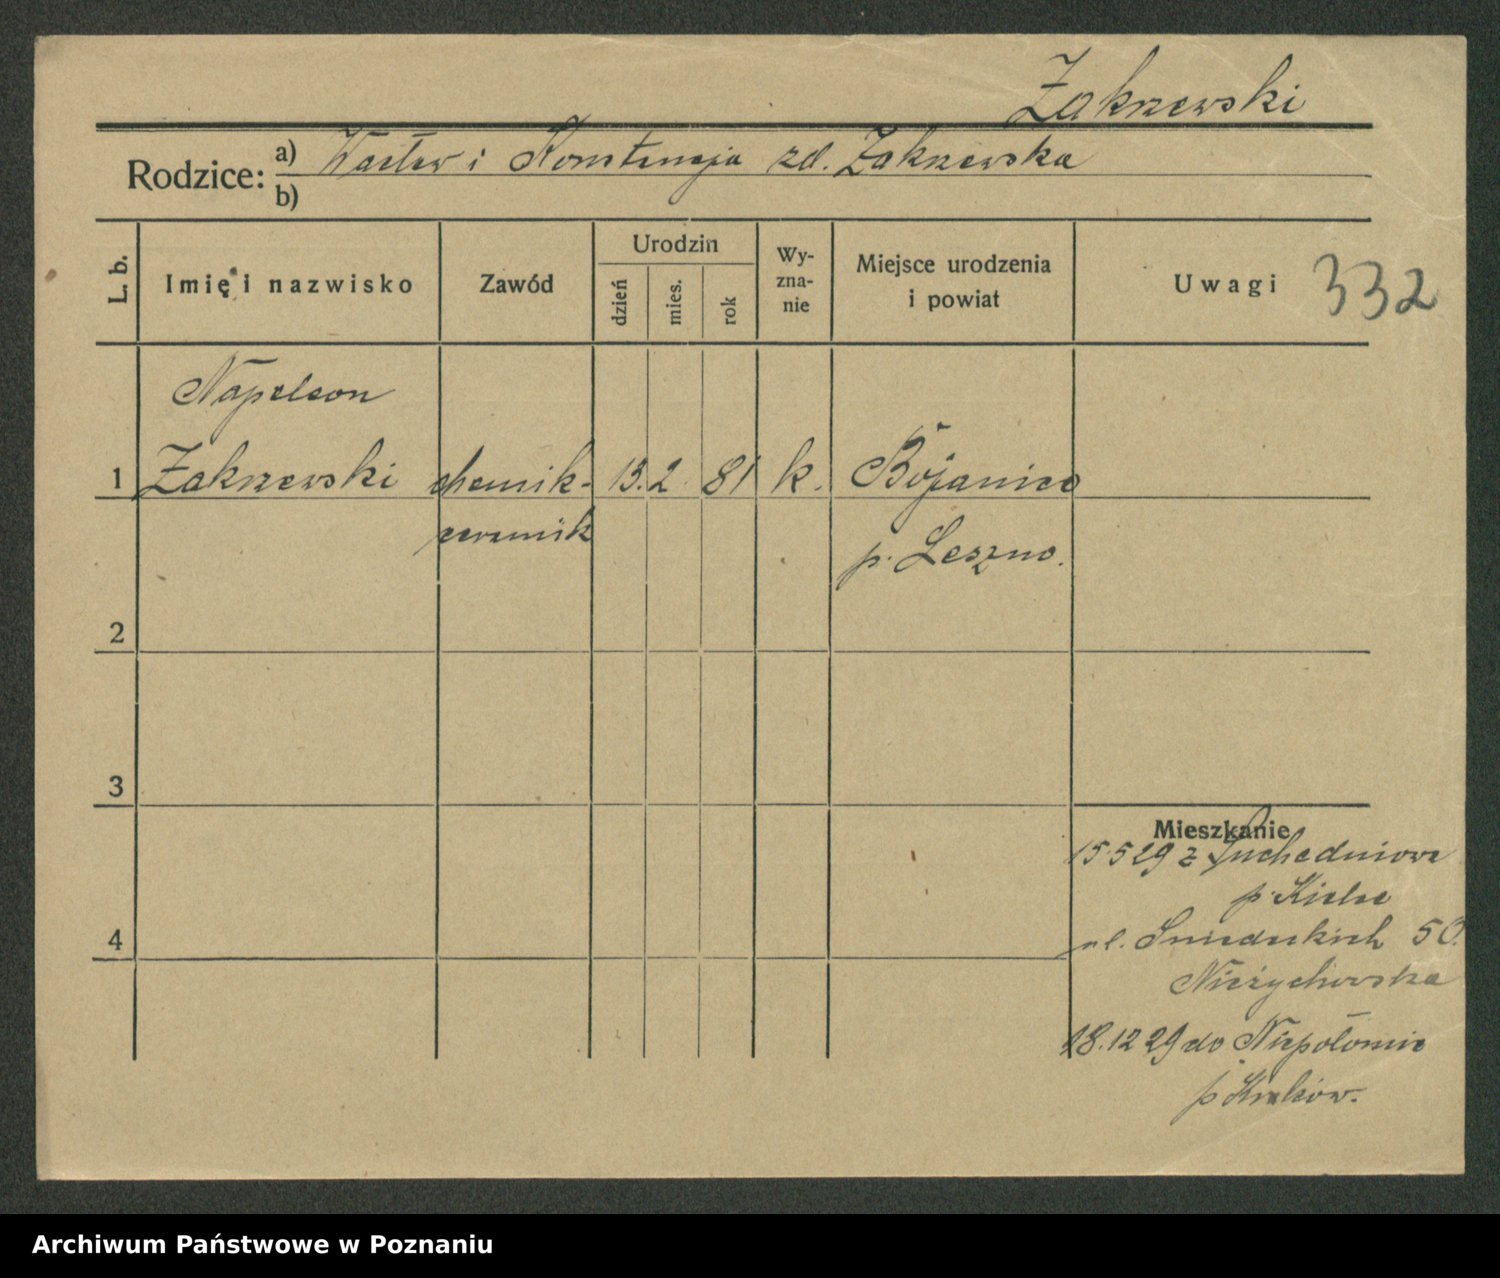 Zakrzewski
Rodzice: a) Wacław i Konstancja zd. Zakrzewska
b)
L. b.
Imię i nazwisko
Zawód
Urodzin
dzień
mies.
rok
Wy-
zna-
nie
Miejsce urodzenia
i powiat
Uwagi
332
Napoleon
1 Zakrzewski chemik- 13. 2. 81 k. Bojanice
ceramik p. Leszno.
2
3
Mieszkanie
15 5 29 z Suchedniowa
p. Kielce
4
ul. Śniadeckich 50.
Nieżychowska
18.12 29 do Niepołomic
p Kraków.
Archiwum Państwowe w Poznaniu